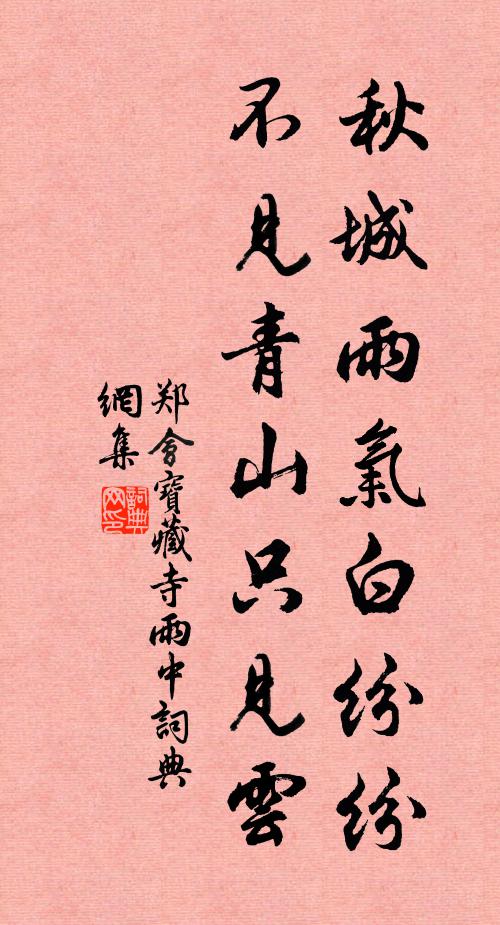 秋城雨氣白紛紛
不見青山只見雲
郑會寶藏寺雨中詞典
網集
詞典
网印